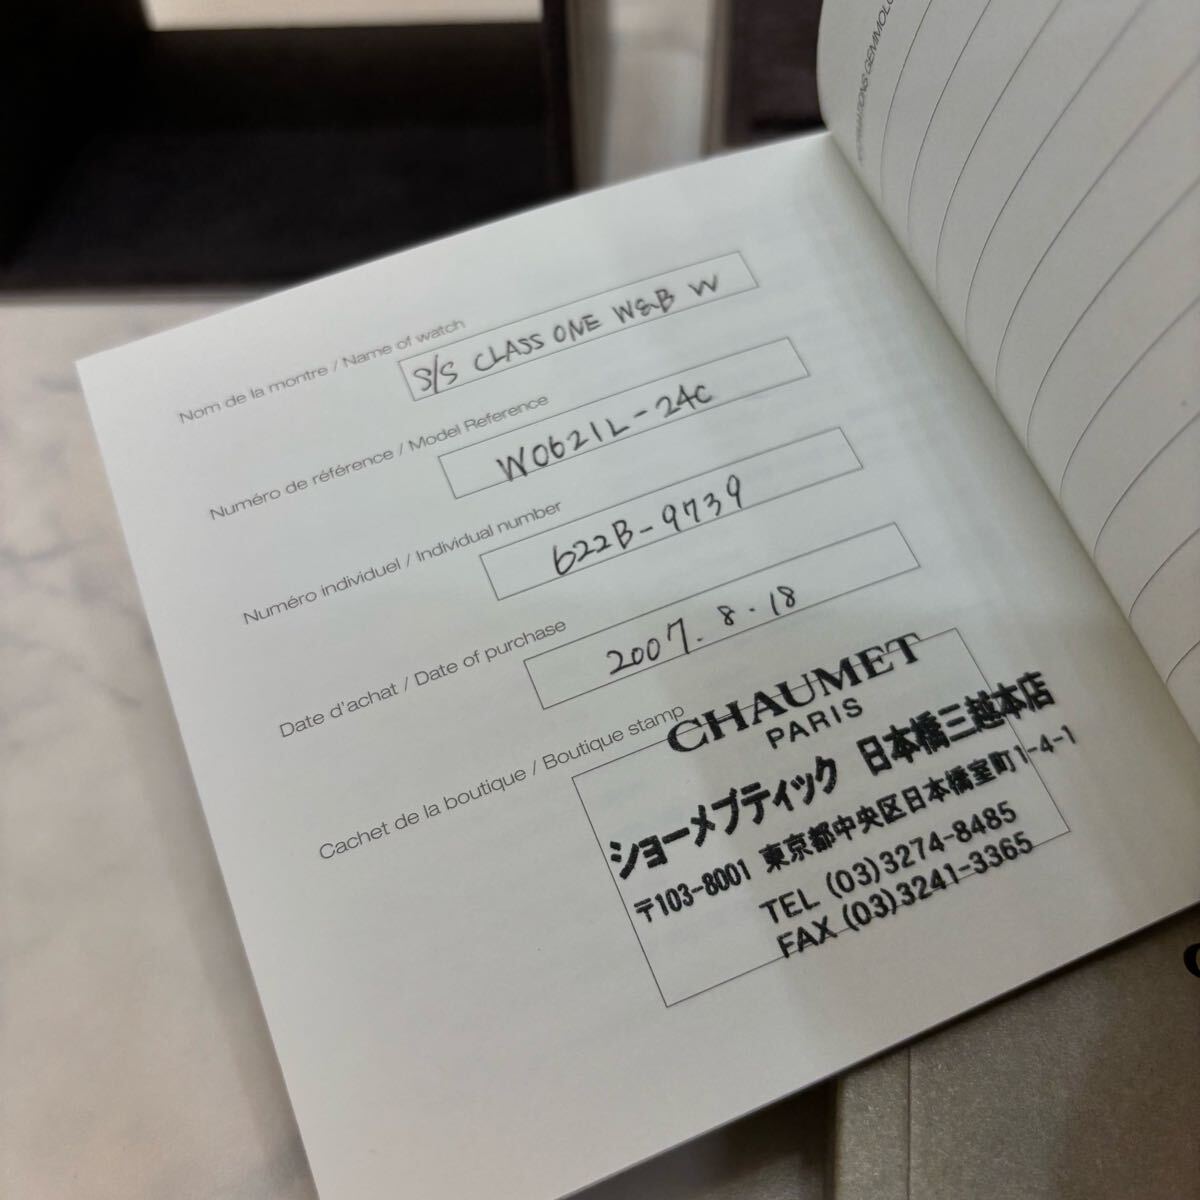 Nom de la montre / Name of watch
S/S CLASS ONE W&B W
Numéro de référence / Model Reference
W0621L-24C
Numéro individuel / Individual number
622B-9739
Date d'achat / Date of purchase
2007.8.18
Cachet de la boutique / Boutique stamp
CHAUMET
PARIS
ショーメブティック 日本橋三越本店
〒103-8001 東京都中央区日本橋室町1-4-1
TEL (03)3274-8485
FAX (03)3241-3365